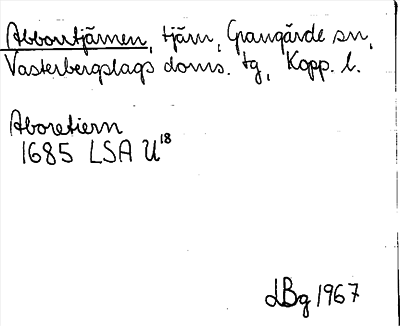 Abborrtjärnen, tjärn, Grangärde sn,
Västerbergslags doms. tg, Kopp. l.
Aboretiern
1685 LSA U18
LBg 1967